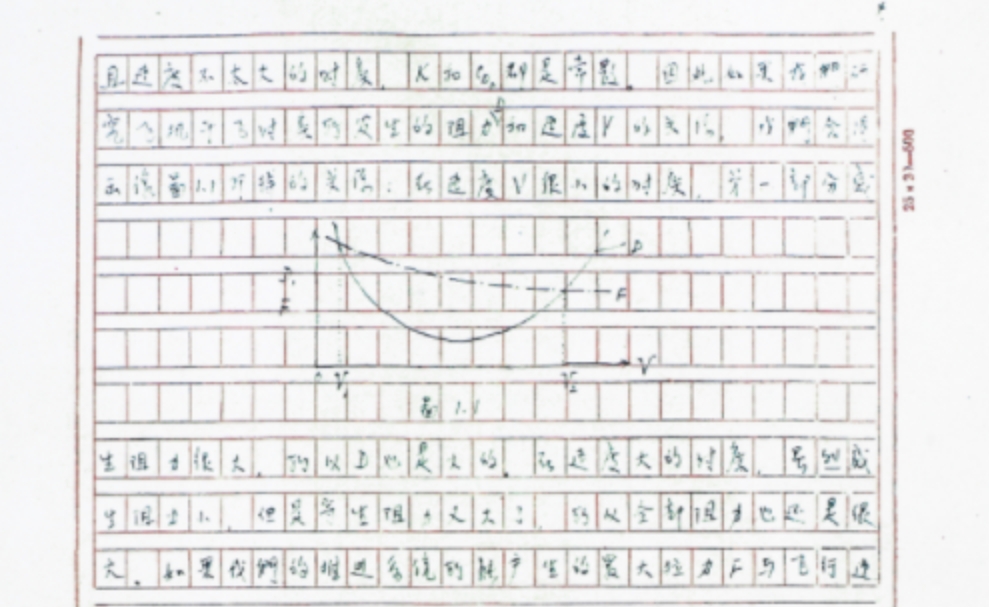 且速度不太大的时候,K和C₀都是常数。因此如果我们研
究飞机平飞时候所发生的阻力D和速度V的关系,我们会得
出像图1.1所指的关系:在速度V很小的时候,第一部分感
D
F
V
V₁ V₂
图1.1
生阻力很大,所以D也是大的。在速度大的时候,虽然感
生阻力小,但是寄生阻力又大了,所以全部阻力也还是很
大。如果我們的推进系统所能产生的最大拉力F与飞行速
25×20=500